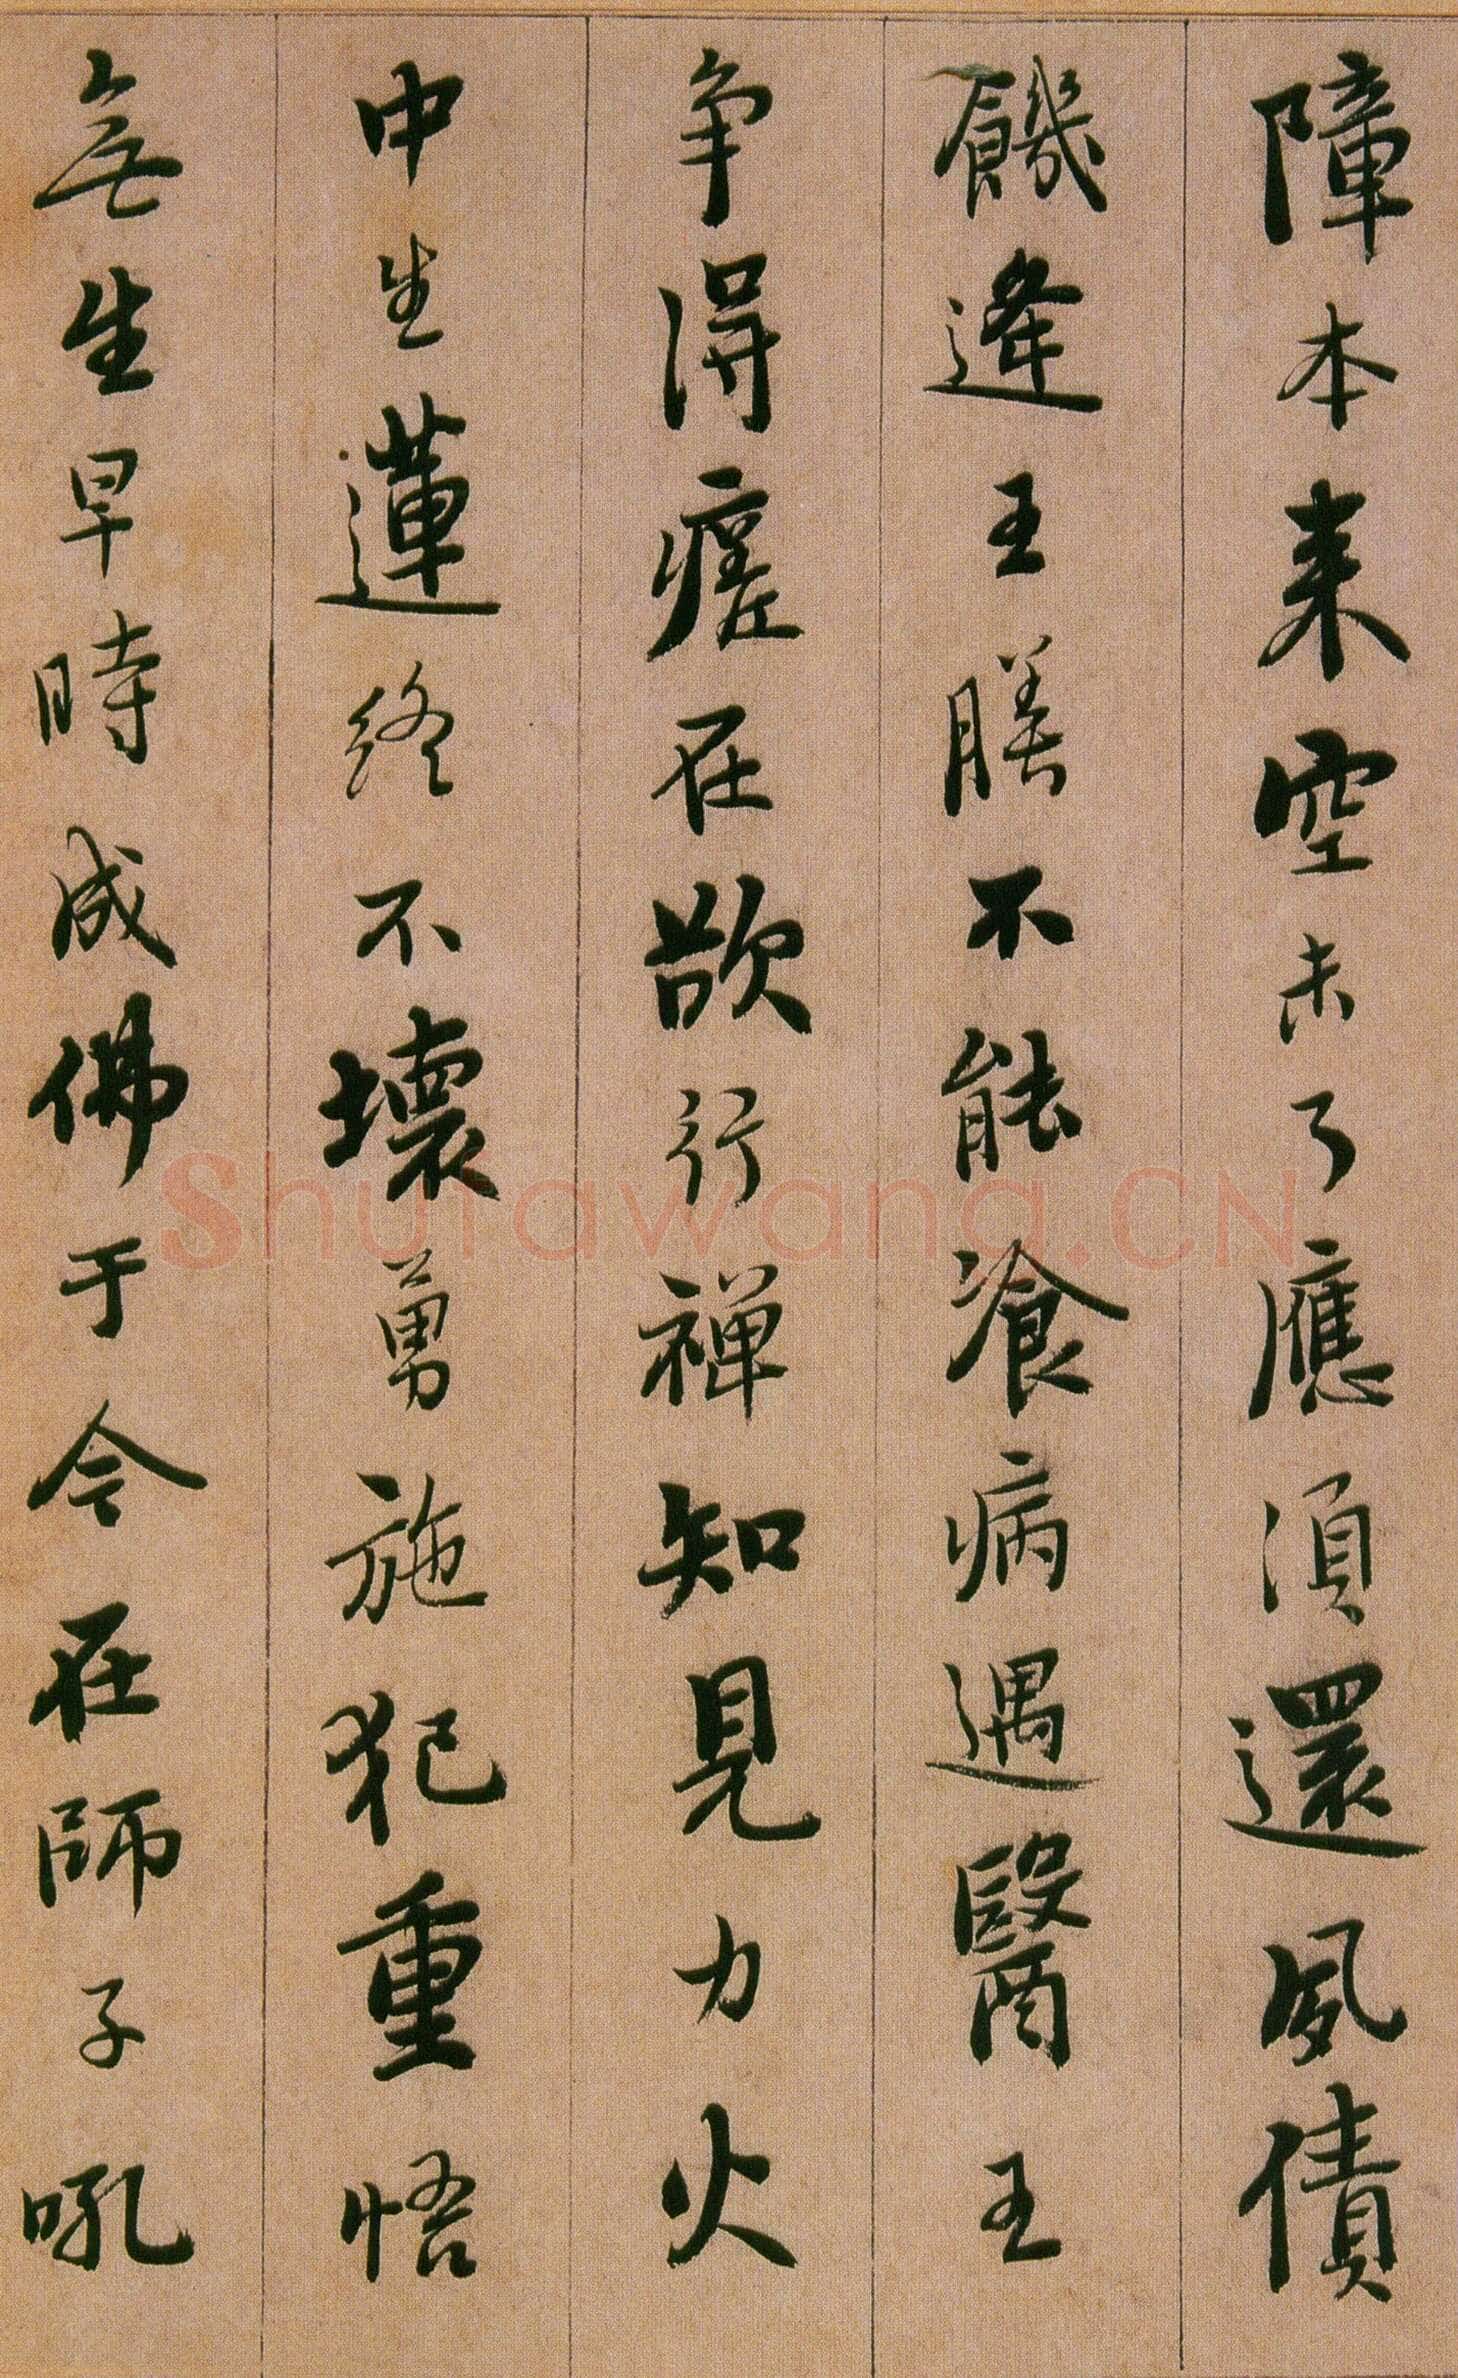 障本来空未了應須還夙債
饑逢王膳不能湌病遇醫王
争得瘥在欲行禅知見力火
中生蓮終不壞勇施犯重悟
無生早時成佛于今在師子吼
Shufawang.CN